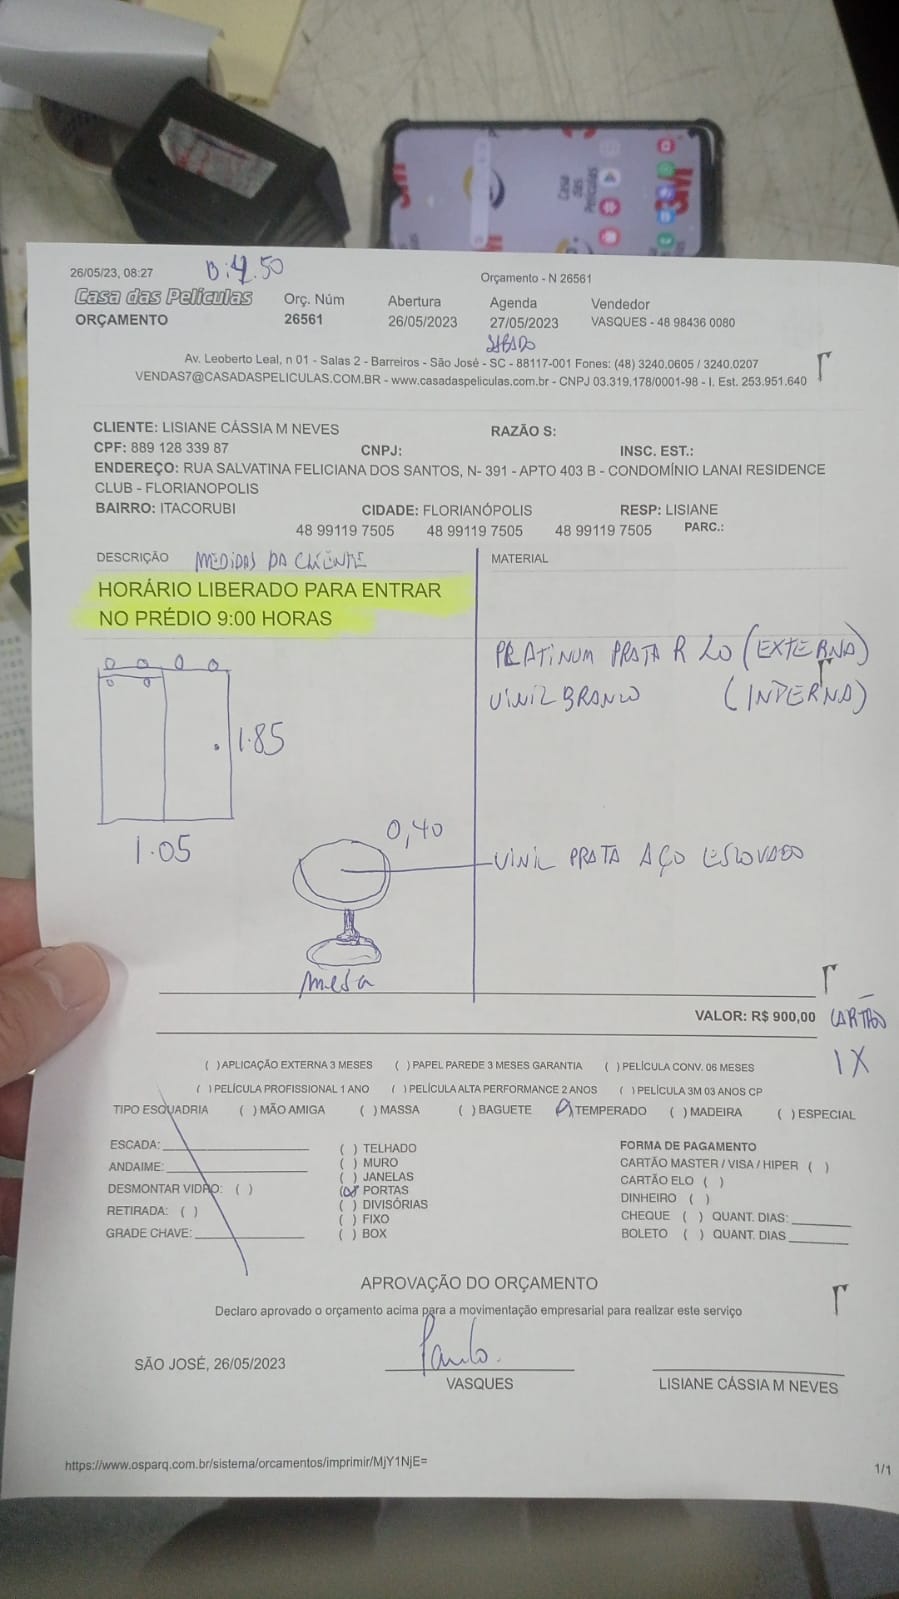 26/05/23, 08:27
B:4.50
Orçamento - N 26561
Casa das Películas
Orç. Núm
Abertura
Agenda
Vendedor
ORÇAMENTO
26561
26/05/2023
27/05/2023
VASQUES - 48 98436 0080
SABADO
Av. Leoberto Leal, n 01 - Salas 2 - Barreiros - São José - SC - 88117-001 Fones: (48) 3240.0605 / 3240.0207
VENDAS7@CASADASPELICULAS.COM.BR - www.casadaspeliculas.com.br - CNPJ 03.319.178/0001-98 - I. Est. 253.951.640
CLIENTE: LISIANE CÁSSIA M NEVES RAZÃO S:
CPF: 889 128 339 87 CNPJ: INSC. EST.:
ENDEREÇO: RUA SALVATINA FELICIANA DOS SANTOS, N- 391 - APTO 403 B - CONDOMÍNIO LANAI RESIDENCE
CLUB - FLORIANOPOLIS
BAIRRO: ITACORUBI CIDADE: FLORIANÓPOLIS RESP: LISIANE
48 99119 7505 48 99119 7505 48 99119 7505 PARC.:
DESCRIÇÃO MEDIDAS DA CLIENTE
MATERIAL
HORÁRIO LIBERADO PARA ENTRAR
NO PRÉDIO 9:00 HORAS
PRATINUM PRATA R 20 (EXTERNA)
VINIL BRANCO (INTERNA)
1.85
1.05
0,40
VINIL PRATA AÇO ESCOVADO
mesa
VALOR: R$ 900,00 CARTÃO
1X
( ) APLICAÇÃO EXTERNA 3 MESES ( ) PAPEL PAREDE 3 MESES GARANTIA ( ) PELÍCULA CONV. 06 MESES
( ) PELÍCULA PROFISSIONAL 1 ANO ( ) PELÍCULA ALTA PERFORMANCE 2 ANOS ( ) PELÍCULA 3M 03 ANOS CP
TIPO ESQUADRIA ( ) MÃO AMIGA ( ) MASSA ( ) BAGUETE ( ) TEMPERADO ( ) MADEIRA ( ) ESPECIAL
ESCADA:
ANDAIME:
DESMONTAR VIDRO: ( )
RETIRADA: ( )
GRADE CHAVE:
( ) TELHADO
( ) MURO
( ) JANELAS
( ) PORTAS
( ) DIVISÓRIAS
( ) FIXO
( ) BOX
FORMA DE PAGAMENTO
CARTÃO MASTER / VISA / HIPER ( )
CARTÃO ELO ( )
DINHEIRO ( )
CHEQUE ( ) QUANT. DIAS:
BOLETO ( ) QUANT. DIAS
APROVAÇÃO DO ORÇAMENTO
Declaro aprovado o orçamento acima para a movimentação empresarial para realizar este serviço
SÃO JOSÉ, 26/05/2023
Paulo.
VASQUES
LISIANE CÁSSIA M NEVES
https://www.osparq.com.br/sistema/orcamentos/imprimir/MjY1NjE=
1/1
Casa
das
Películas
3M